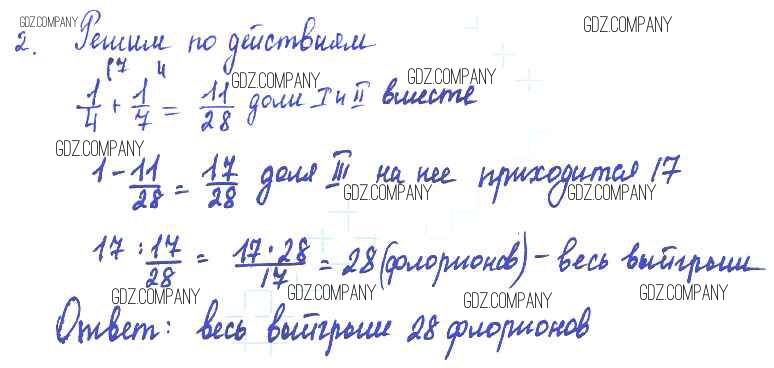 GDZ.COMPANY GDZ.COMPANY
2. Решим по действиям
7 4
GDZ.COMPANY GDZ.COMPANY
1/4 + 1/7 = 11/28 доли I и II вместе
GDZ.COMPANY
1 - 11/28 = 17/28 доля III на нее приходится 17
GDZ.COMPANY GDZ.COMPANY
17 : 17/28 = 17·28/17 = 28 (флорионов) - весь выигрыш
GDZ.COMPANY GDZ.COMPANY GDZ.COMPANY GDZ.COMPANY
Ответ: весь выигрыш 28 флорионов